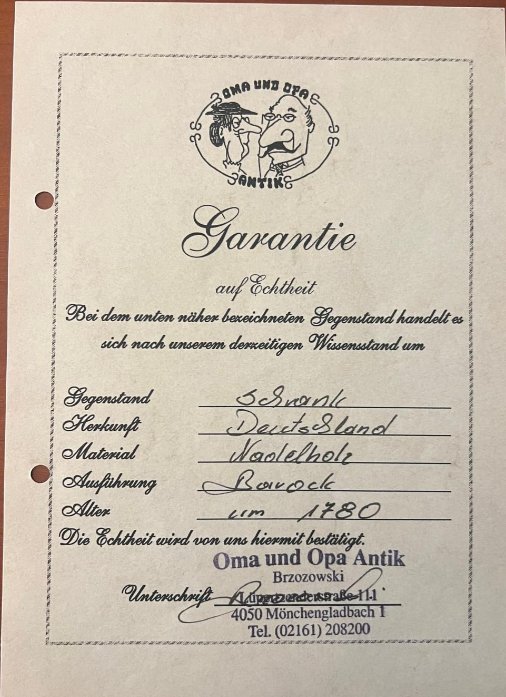 OMA UND OPA
ANTIK
Garantie
auf Echtheit
Bei dem unten näher bezeichneten Gegenstand handelt es
sich nach unserem derzeitigen Wissensstand um
Gegenstand Schrank
Herkunft Deutschland
Material Nadelholz
Ausführung Barock
Alter um 1780
Die Echtheit wird von uns hiermit bestätigt.
Oma und Opa Antik
Brzozowski
Unterschrift
4050 Mönchengladbach 1
Tel. (02161) 208200